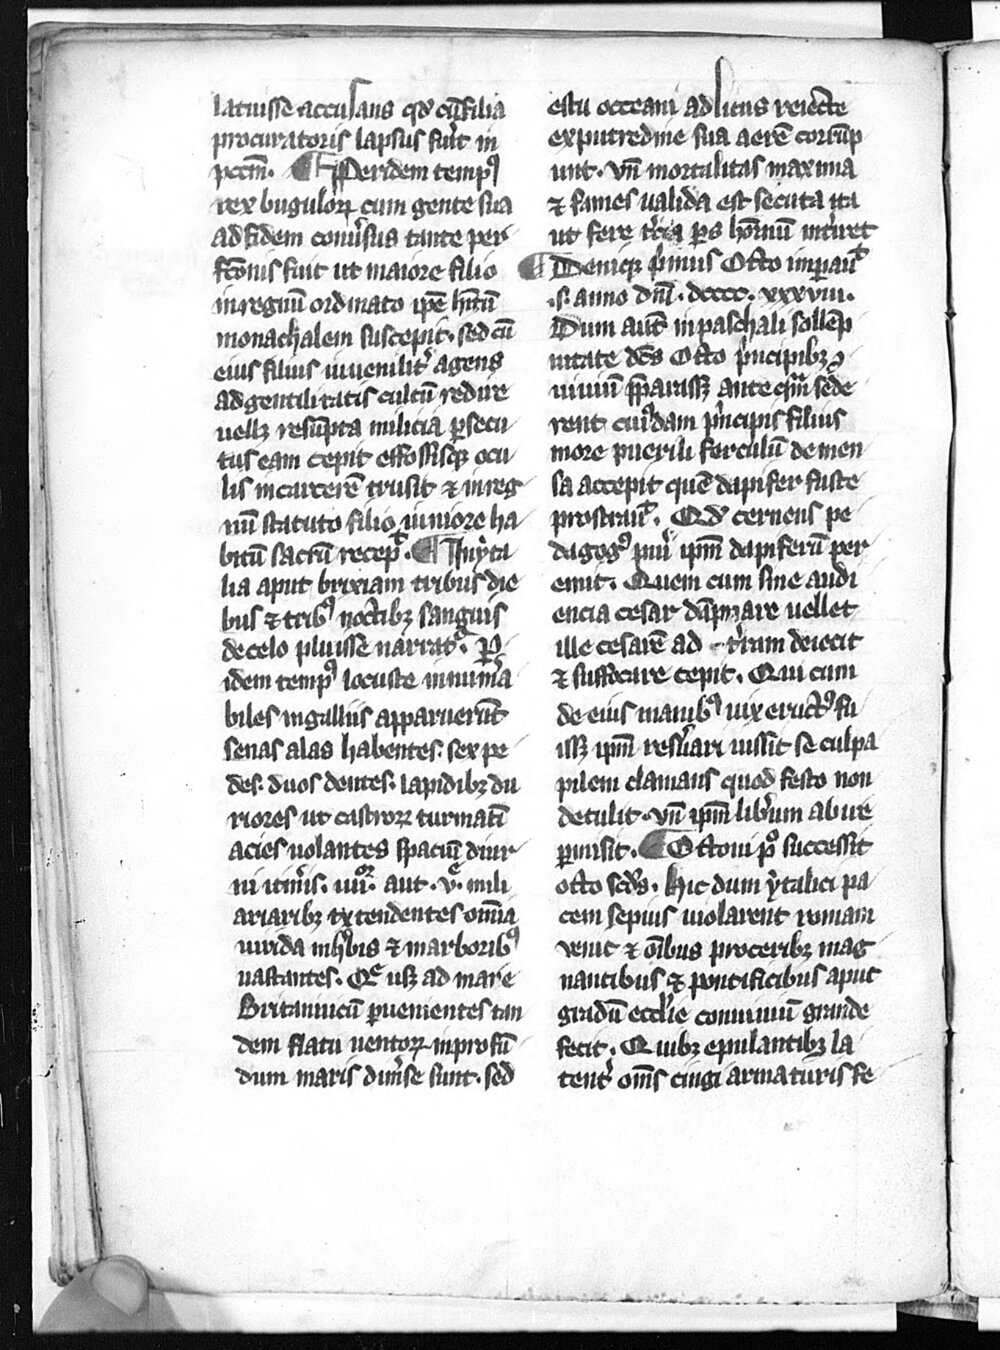 latuisse accusans qd' cu̅ filia
procuratoris lapsus fu'it in
pcc̅m. ¶ Per idem temp⁹
rex bugulorꝝ cum gente sua
ad fidem con̅u'sus tante per
fc̅onis fuit ut maiore filio
in regnu̅ ordinato ip̅e h̅itu̅
monachalem suscepit. sed cu̅
eius filius iuuenilit' agens
ad gentilitatis cultu̅ redire
uellꝫ resu̅pta milicia ꝑsecu
tus eam cepit effossisqꝫ ocu
lis in carcere̅ trusit ⁊ in reg
nu̅ statuto filio iuniore ha
bitu̅ sacru̅ recep̅t. ¶ In yta
lia aput brixiam tribus die
bus ⁊ trib⁹ noctibꝫ sanguis
de celo pluisse narrat'. Ꝑ
idem temp⁹ locuste innum'a
biles in galliis apparueru̅t
senas alas habentes. sex pe
des. duos dentes. lapidibꝫ du
riores ut castrorꝝ turmati̅
acies uolantes spaciu̅ diur
ni itin'is. iiii. aut. v. mili
ariaribꝫ extendentes om̅ia
uirida in h'bis ⁊ marborib⁹
uastantes. Qͤ usqꝫ ad mare
Britannicu̅ ꝑuenientes tan
dem flatu uentorꝝ in profu̅
dum maris dim'se sunt. sed
estu occeani ad litus reiecte
ex putredine sua aere̅ corru̅p
unt. vn̅ mortalitas maxima
⁊ fames ualida est secuta ita
ut fere t'cia ꝑs hom̅nu̅ int'iret
¶ Deniqꝫ p'mus Otto imꝑauit
.s. anno dn̅i. dcccc. xxxviii.
Dum aut̅ in paschali solle̅p
nitate d̅c̅s Otto p'ncipibꝫ ꝯ
uiuiu̅ p̅parassꝫ ante qm̅ sede
rent cui'dam p'ncipis filius
more puerili ferculu̅ de men
sa accepit que̅ dapifer fuste
prostrauit. Qd' cernens pe
dagog⁹ pu'i ip̅m dapiferu̅ per
emit. Quem cum sine audi
encia cesar da̅pnare uellet
ille cesare̅ ad t'ram deiecit
⁊ suffocare cepit. Qui cum
de eius manib⁹ uix eruct⁹ fu
issꝫ ip̅m res'uari iussit se culpa
pilem clamans quod festo non
detulit. vn̅ ip̅m lib'um abire
ꝑmisit. ¶ Ottoni pͦ successit
otto sc̅d's. Hic dum ytalici pa
cem sepius uiolarent romam
venit ⁊ o̅ibus proceribꝫ mag
nantibus ⁊ pontificibus aput
gradu̅ eccl'ie conuiuiu̅ grande
fecit. Quibꝫ epulantibꝫ la
tent' om̅s cingi armaturis fe